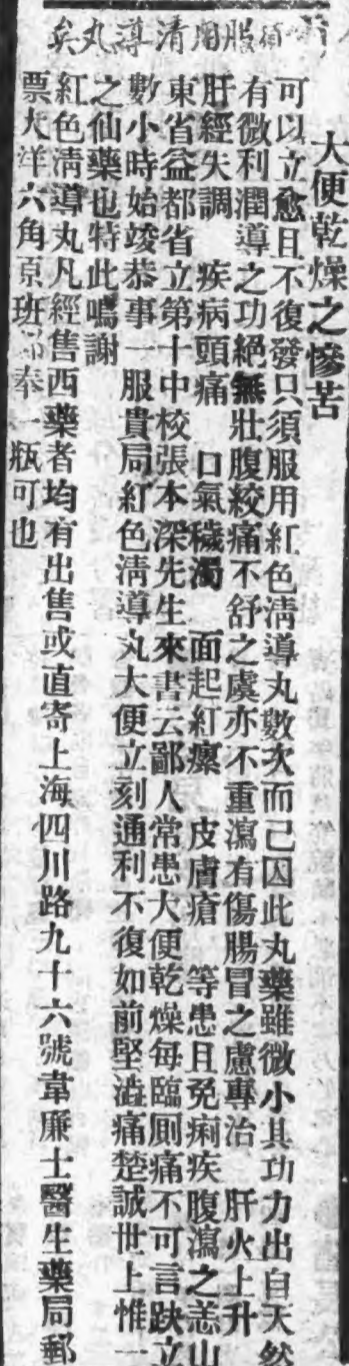 須服用清導丸矣
大便乾燥之慘苦
可以立愈且不復發只須服用紅色淸導丸數次而已因此丸藥雖微小其功力出自天然
有微利潤導之功絕無壯腹絞痛不舒之虞亦不重瀉有傷腸胃之慮專治 肝火上升
肝經失調 疾病頭痛 口氣穢濁 面起紅瘰 皮膚瘡 等患且免痢疾腹瀉之恙山
東省益都省立第十中校張本深先生來書云鄙人常患大便乾燥每臨厠痛不可言趺立
數小時始竣恭事一服貴局紅色淸導丸大便立刻通利不復如前堅澁痛楚誠世上惟一
之仙藥也特此鳴謝
紅色淸導丸凡經售西藥者均有出售或直寄上海四川路九十六號韋廉士醫生藥局郵
票大洋六角原班奉一瓶可也